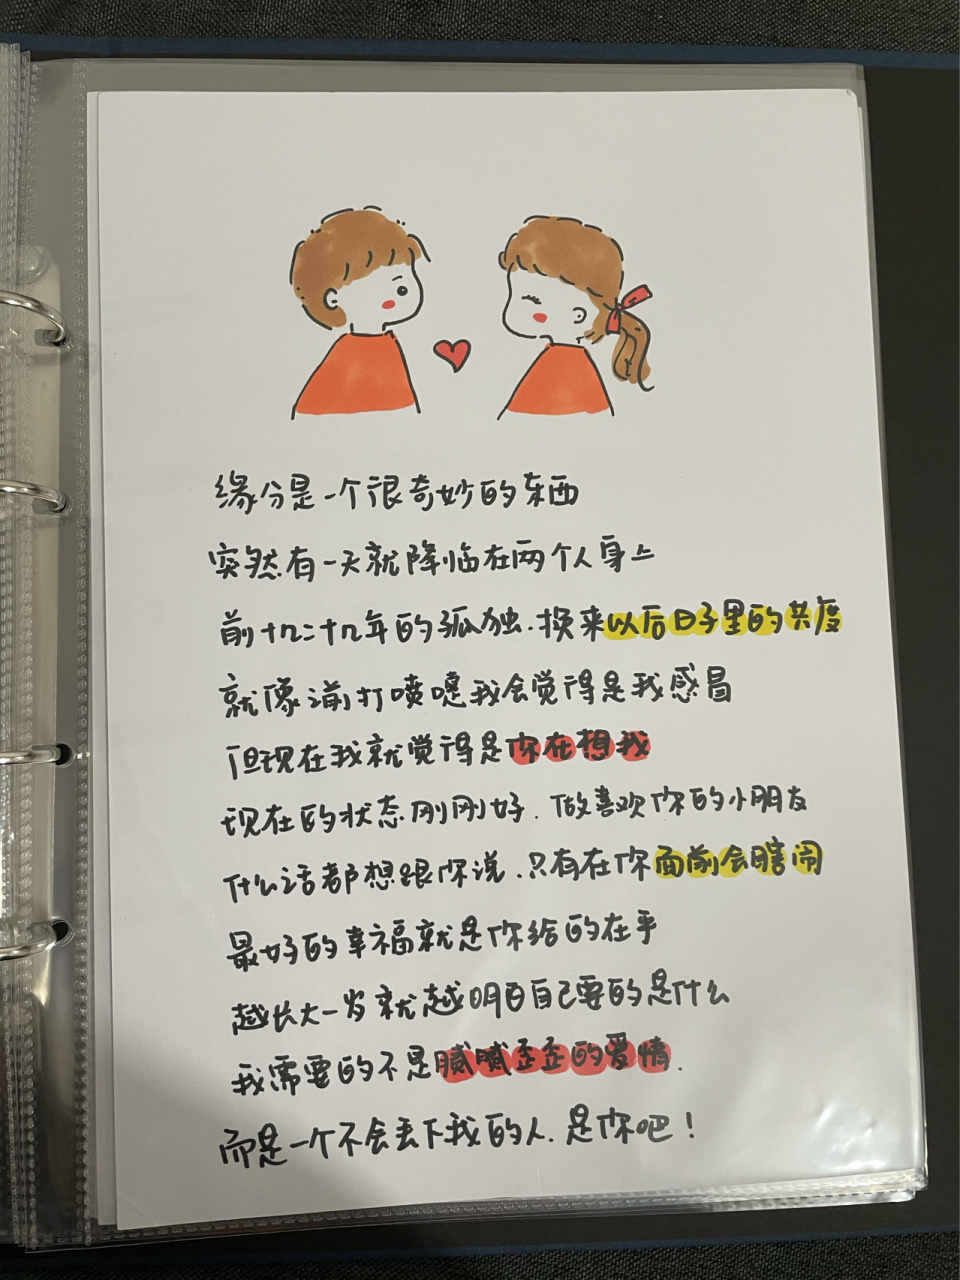 缘分是一个很奇妙的东西
突然有一天就降临在两个人身上
前十九二十九年的孤独.换来以后日子里的共度
就像前打喷嚏我会觉得是我感冒
但现在我就觉得是你在想我
现在的状态刚刚好.做喜欢你的小朋友
什么话都想跟你说.只有在你面前会瞎闹
最好的幸福就是你给的在乎
越长大一岁就越明白自己要的是什么
我需要的不是腻腻歪歪的爱情.
而是一个不会丢下我的人.是你吧!